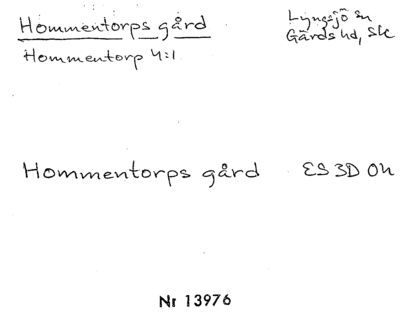 Hommentorps gård
Lyngsjö sn
Hommentorp 4:1
Gärds hd, Sk
Hommentorps gård ES 3D 0h
Nr 13976